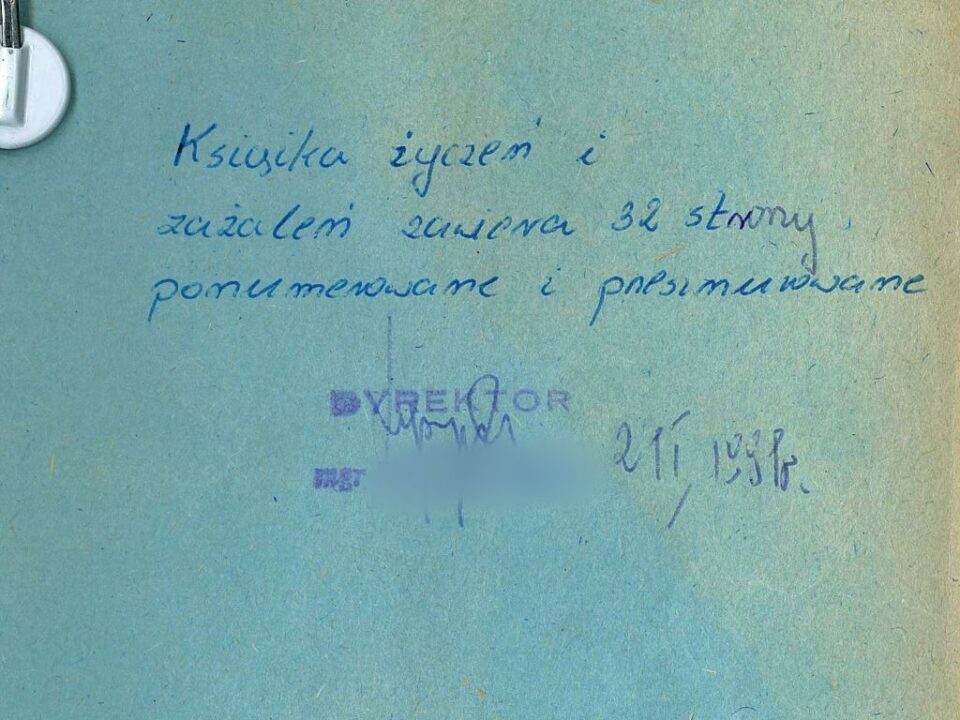 Książka życzeń i
zażaleń zawiera 32 strony
ponumerowane i przesznurowane
DYREKTOR
mgr